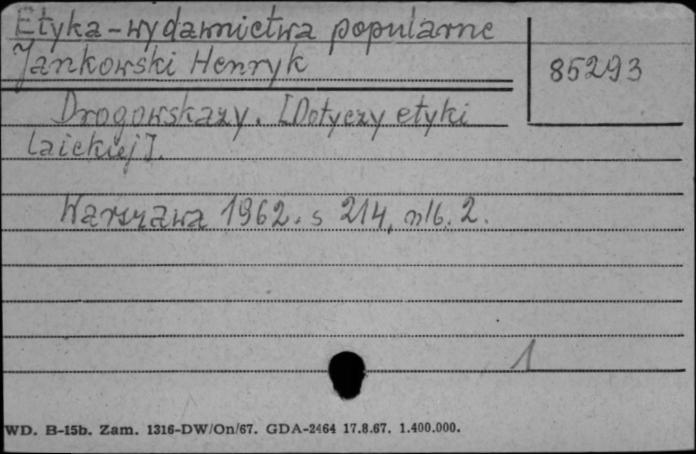 Etyka-wydawnictwa popularne
Jankowski Henryk
85293
Drogowskazy. [Dotyczy etyki
laickiej].
Warszawa 1962. s 214, nlb. 2.
1
WD. B-15b. Zam. 1316-DW/On/67. GDA-2464 17.8.67. 1.400.000.